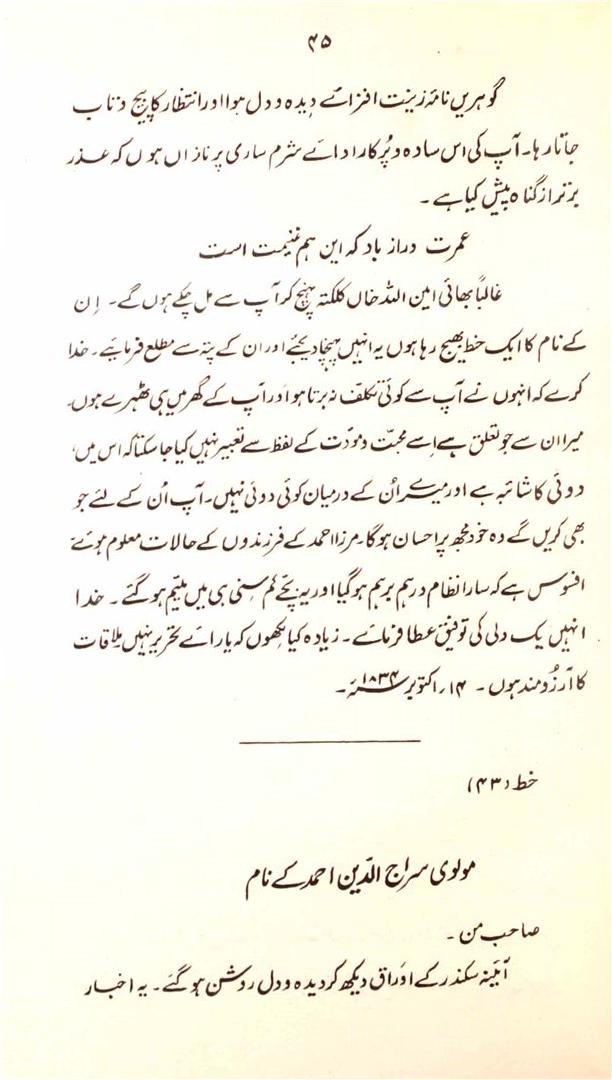 ۴۵
گوہریں نامۂ زینت افزائے دیدہ و دل ہوا اور انتظار کا پیچ و تاب
جاتا رہا۔ آپ کی اس سادہ و پُرکار ادائے شرم ساری پر نازاں ہوں کہ عذر
بر تر از گناہ پیش کیا ہے۔
عمرت دراز باد کہ ایں ہم غنیمت است
غالباً بھائی امین اللہ خاں کلکتہ پہنچ کر آپ سے مل چکے ہوں گے۔ ان
کے نام کا ایک خط بھیج رہا ہوں یہ انہیں پہنچا دیجئے اور ان کے پتہ سے مطلع فرمائیے۔ خدا
کرے کہ انہوں نے آپ سے کوئی تکلف نہ برتا ہو اور آپ کے گھر میں ہی ٹھہرے ہوں۔
میرا ان سے جو تعلق ہے اسے محبّت و مودّت کے لفظ سے تعبیر نہیں کیا جا سکتا کہ اس میں
دوئی کا شائبہ ہے اور میرے اُن کے درمیان کوئی دوئی نہیں۔ آپ اُن کے لئے جو
بھی کریں گے وہ خود مجھ پر احسان ہوگا۔ مرزا احمد کے فرزندوں کے حالات معلوم ہوئے
افسوس ہے کہ سارا نظام درہم برہم ہو گیا اور یہ بچّے کم سِنی ہی میں یتیم ہو گئے۔ خدا
انہیں یک دلی کی توفیق عطا فرمائے۔ زیادہ کیا لکھوں کہ یارائے تحریر نہیں ملاقات
کا آرزُو مند ہوں۔ ۱۴؍ اکتوبر ۱۸۳۴ء۔
خط (۴۳)
مولوی سراج الدّین احمد کے نام
صاحب من۔
آئینہ سکندر کے اوراق دیکھ کر دیدہ و دل روشن ہو گئے۔ یہ اخبار